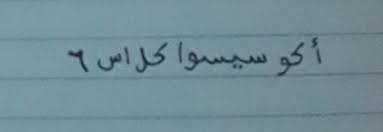 أكو سيسوا كلاس ٦